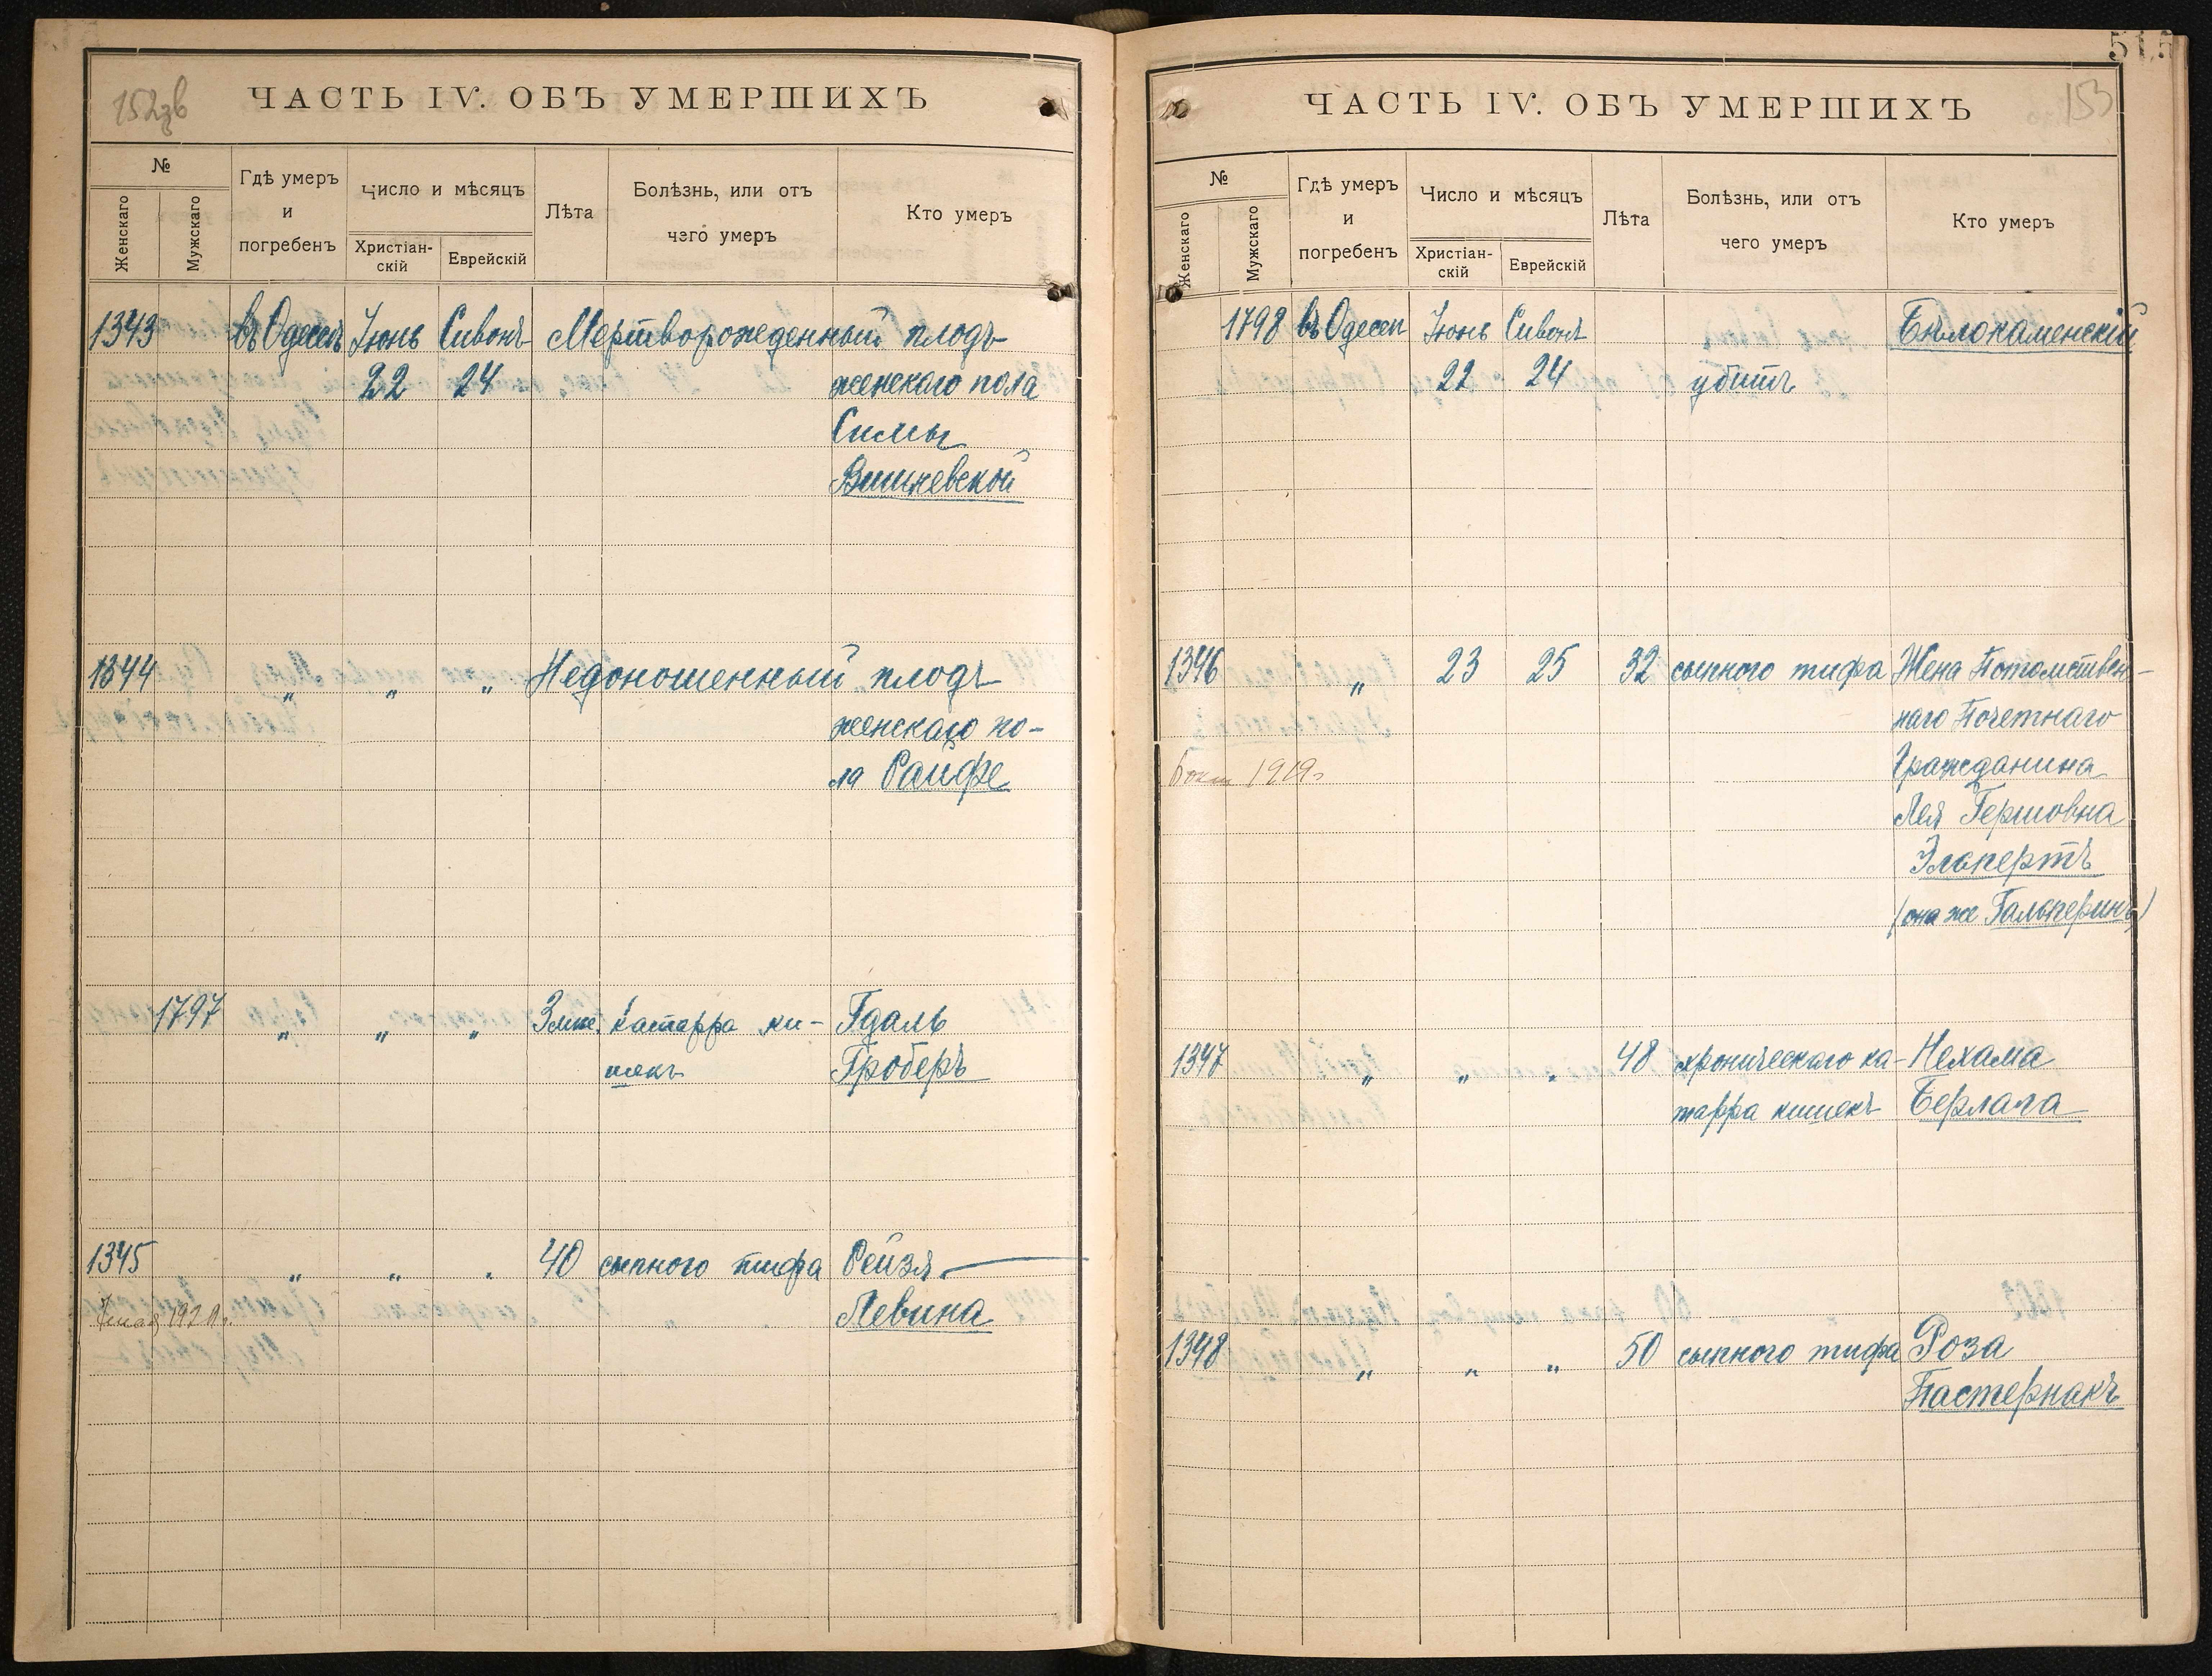 ЧАСТЬ IV. ОБЪ УМЕРШИХЪ
№
Женскаго
Мужскаго
Гдѣ умеръ
и
погребенъ
Число и мѣсяцъ
Христіан-
скій
Еврейскій
Лѣта
Болѣзнь, или отъ
чэго умеръ
Кто умеръ
1343 въ Одессѣ Іюнь Сивонъ Мертворожденный плодъ
22 24 женскаго пола
Симы
Вишневской
1344 „ „ „ Недоношенный плодъ
женскаго по-
ла Райфе
1797 „ „ „ 3 мѣс. катарра ки-
шекъ
Гдаль
Гроберъ
1345 „ „ „ 40 сыпного тифа Рейзя
Левина
мая 192
515
ЧАСТЬ IV. ОБЪ УМЕРШИХЪ
153
№
Женскаго
Мужскаго
Гдѣ умеръ
и
погребенъ
Число и мѣсяцъ
Христіан-
скій
Еврейскій
Лѣта
Болѣзнь, или отъ
чего умеръ
Кто умеръ
1798 въ Одессѣ Іюнь Сивонъ Бѣлокаменскій
22 24 убитъ
1346 „ 23 25 32 сыпного тифа Жена Потомствен-
наго Почетнаго
Гражданина
Лея Гершовна
Элапертъ
(она же Гальперинъ)
6 окт 1919 г
1347 „ „ „ 48 хроническаго ка-
тарра кишекъ
Нехама
Берлага
1348 „ „ „ 50 сыпного тифа Роза
Пастернакъ